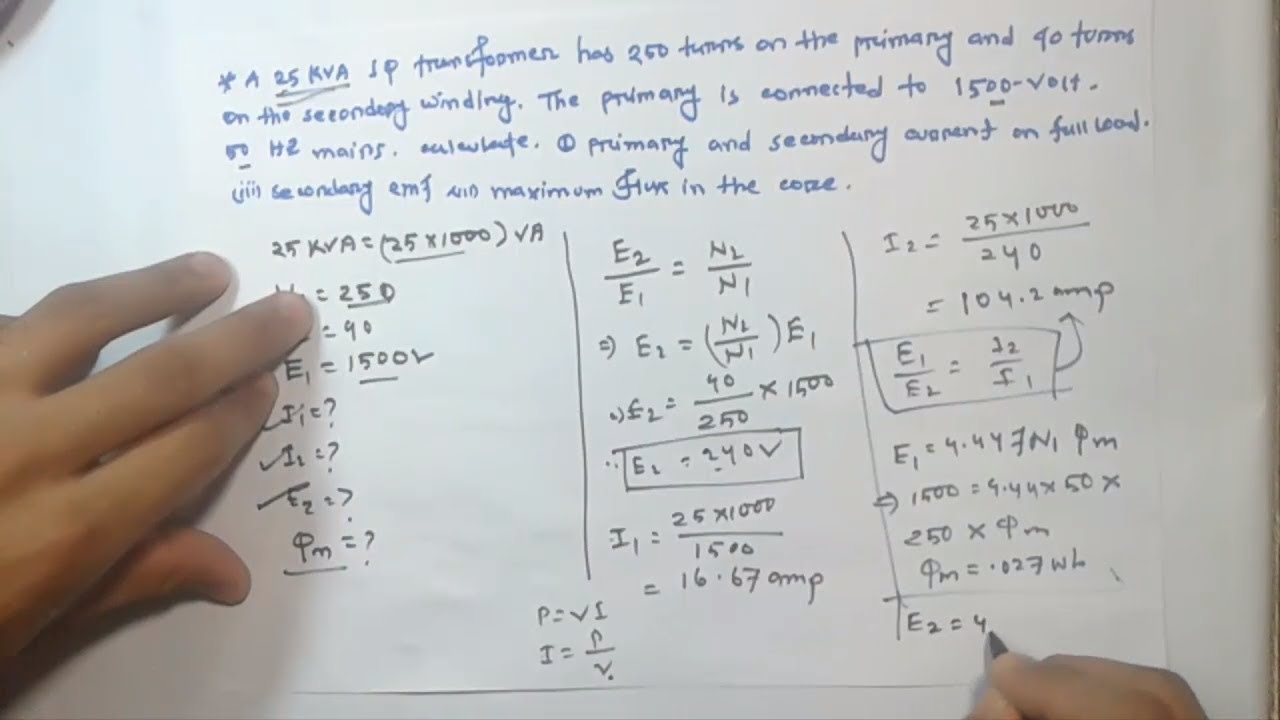 * A 25 KVA 1φ transformer has 250 turns on the primary and 40 turns
on the secondary winding. The primary is connected to 1500-volt.
50 HZ mains. calculate. ① primary and secondary current on full load.
(ii) secondary emf (iii) maximum flux in the core.
25 KVA = (25×1000) VA
= 250
= 40
E₁ = 1500V
I₁ = ?
✓ I₂ = ?
✓ E₂ = ?
φm = ?
E₂/E₁ = N₂/N₁
⇒ E₂ = (N₂/N₁) E₁
E₂ = 40/250 × 1500
∴ E₂ = 240V
I₁ = 25×1000/1500
= 16.67 amp
P = VI
I = P/V.
I₂ = 25×1000/240
= 104.2 amp
E₁/E₂ = I₂/I₁
E₁ = 4.44 f N₁ φm
⇒ 1500 = 4.44 × 50 ×
250 × φm
φm = .027 wb
E₂ = 4